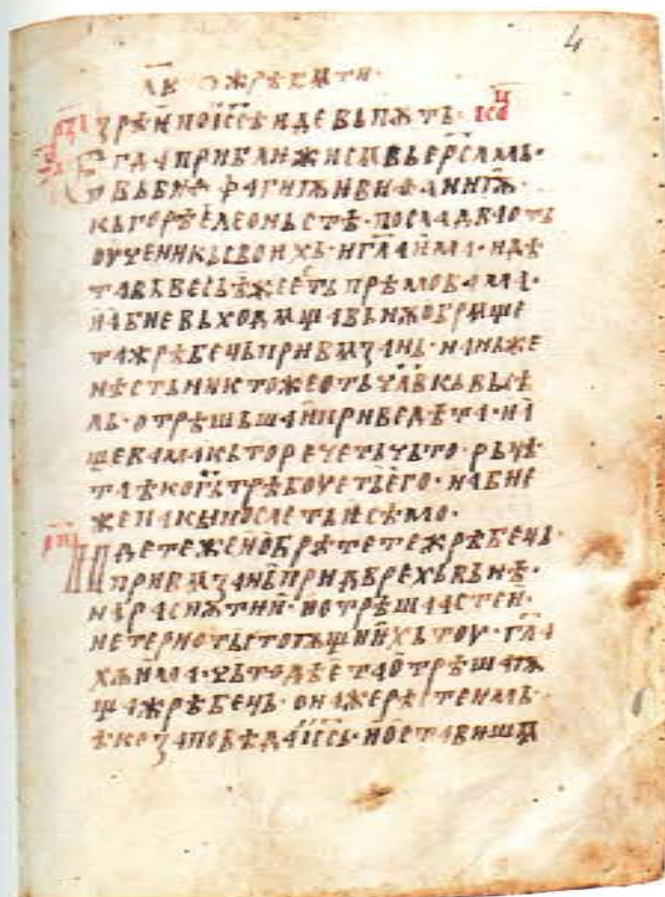 4
ЖРѢБѦТИ·
ЗРѢ И ПОІС҃Ѣ ИДЕ ВЬ ПѪТЬ·
ЕГДА ПРИБЛИЖИСѦ ВЬ ЕРСЛМЬ·
ВЬ ВИѲФАГИѬ И ВИѲАНИѬ
КЬ ГОРѢ ЕЛЕОНЬСТѢ· ПОСЛА ДВА ОТЬ
ОУЧЕНИКЬ СВОИХЬ· И ГЛ҃А ИМА· ИДѢ
ТА ВЬ ВЕСЬ ѢЖЕ ЕСТЬ ПРѢМО ВАМА·
И АБИЕ ВЬХОДѦЩА ВЬ НѪ ОБРѦЩЕ
ТА ЖРѢБЕЧЬ ПРИВѦЗАНЬ· НА НЬЖЕ
НѢСТЬ НИКТОЖЕ ОТЬ ЧЛ҃ВКЬ ВЬСѢ
ЛЬ· ОТРѢШЬША И ПРИВЕДѢТА· И А
ЩЕ ВАМА КЬТО РЕЧЕТЬ ЧЬТО· РЬЧѢ
ТА ѢКО ГЬ ТРѢБОУЕТЬ ЕГО· И АБИЕ
ЖЕ ПАКЫ ПОСЛЕТЬ И СѢМО·
ИДЕТЕ ЖЕ И ОБРѢТЕТЕ ЖРѢБЕЧЬ·
ПРИВѦЗАНЬ ПРИ ДВРЕХЬ ВЬНѢ·
НА РАСПѪТИИ· И ОТРѢШААСТЕ И·
И ЕТЕРИ ОТЬ СТОѨЩИИХЬ ТОУ· ГЛ҃А
ХѪ ИМА· ЧЬТО ДѢЕТА ОТРѢШАѬ
ЩА ЖРѢБЕЧЬ· ОНА ЖЕ РѢСТЕ ИМЬ·
ѢКО ЗАПОВѢДА ІС҃Ь· И ОСТАВИШѦ